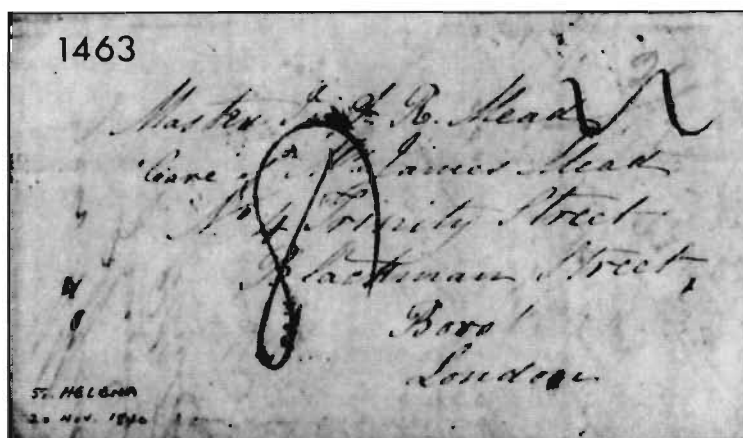 1463
Master J. H. R. Mead
Care of Mr James Mead
No 4 Trinity Street
Blackman Street,
Boro'
London
8
St. HELENA
20 NOV. 1840